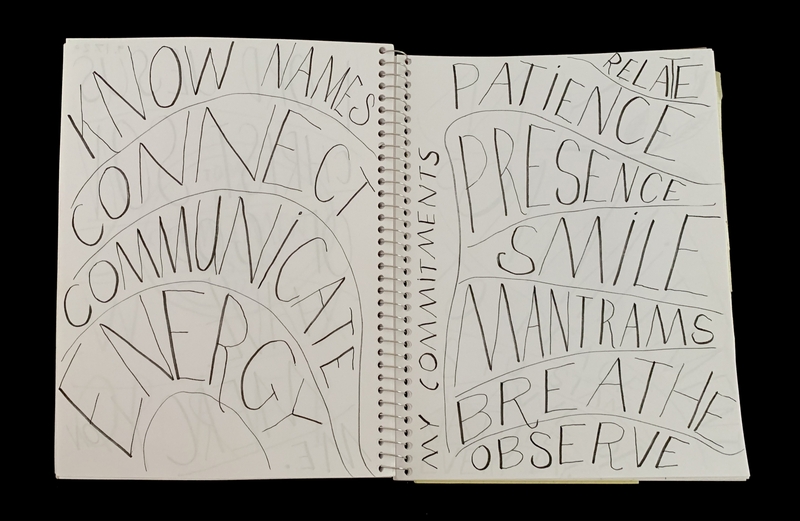 KNOW NAMES
CONNECT
COMMUNiCATE
ENERGY
MY COMMITMENTS
RELATE
PATiENCE
PRESENCE
SMiLE
MANTRAMS
BREATHE
OBSERVE